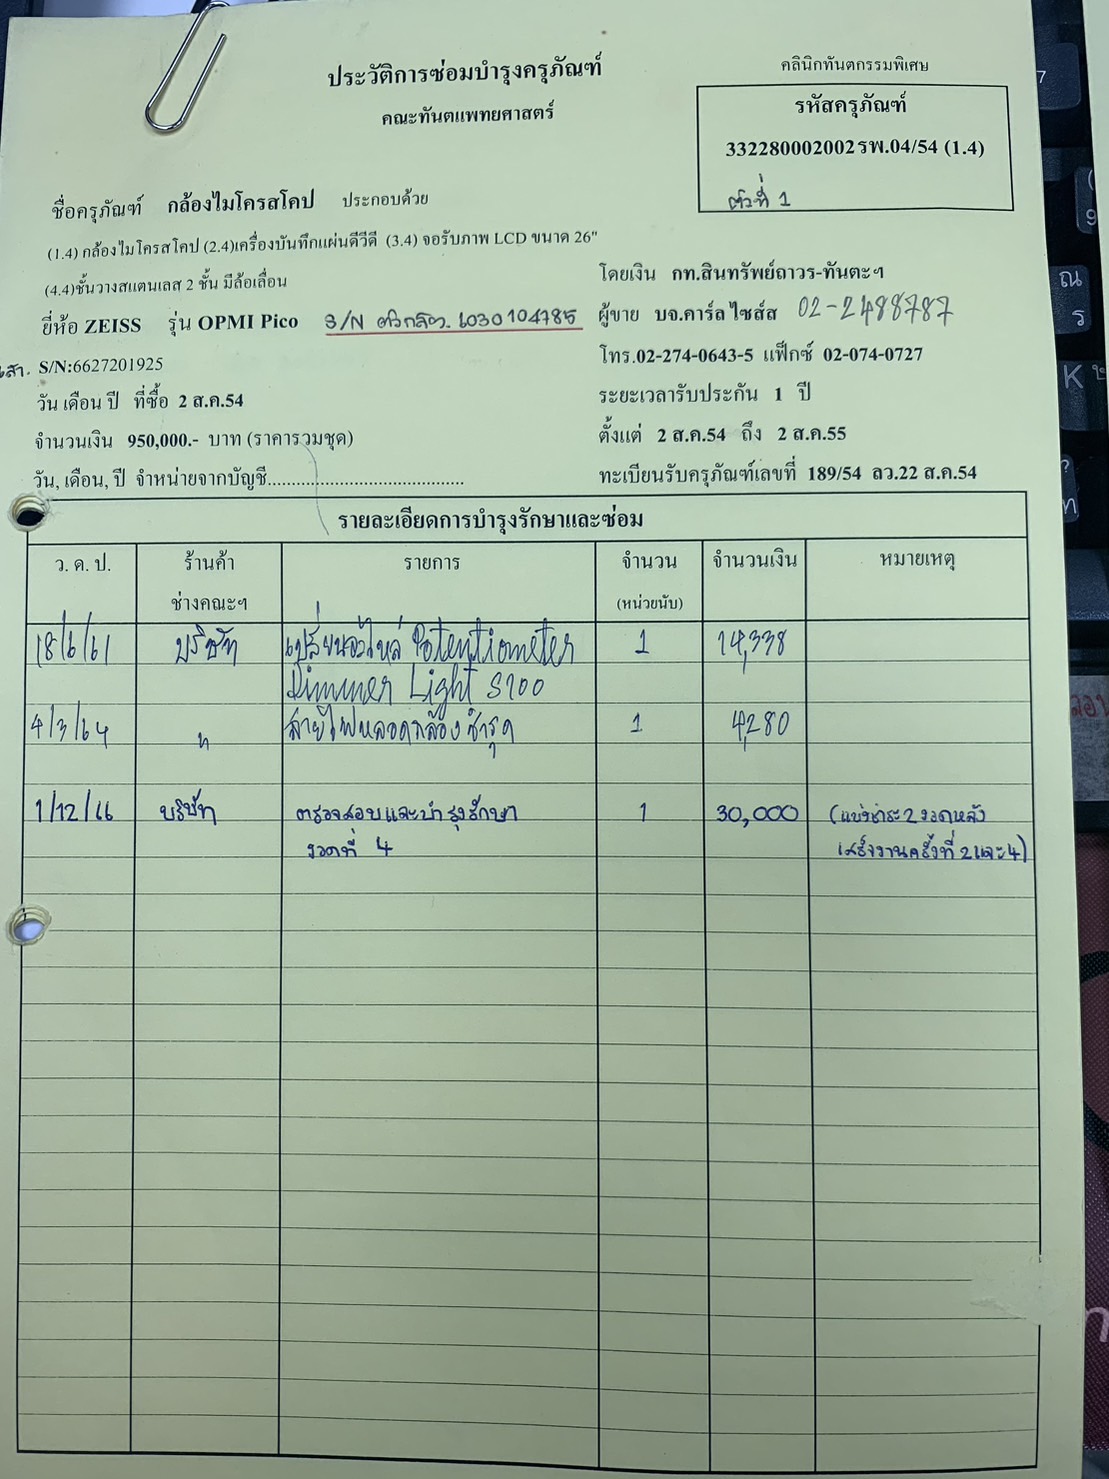 ประวัติการซ่อมบำรุงครุภัณฑ์
คณะทันตแพทยศาสตร์
คลินิกทันตกรรมพิเศษ
รหัสครุภัณฑ์
332280002002รพ.04/54 (1.4)
ตัวที่ 1
ชื่อครุภัณฑ์ กล้องไมโครสโคป ประกอบด้วย
(1.4) กล้องไมโครสโคป (2.4)เครื่องบันทึกแผ่นดีวีดี (3.4) จอรับภาพ LCD ขนาด 26"
(4.4)ชั้นวางสแตนเลส 2 ชั้น มีล้อเลื่อน
ยี่ห้อ ZEISS รุ่น OPMI Pico S/N ตัวกล้อง. 6030104785
เสา. S/N:6627201925
วัน เดือน ปี ที่ซื้อ 2 ส.ค.54
จำนวนเงิน 950,000.- บาท (ราคารวมชุด)
วัน, เดือน, ปี จำหน่ายจากบัญชี.........................................
โดยเงิน กท.สินทรัพย์ถาวร-ทันตะฯ
ผู้ขาย บจ.คาร์ล ไซส์ส 02-2488787
โทร.02-274-0643-5 แฟ็กซ์ 02-074-0727
ระยะเวลารับประกัน 1 ปี
ตั้งแต่ 2 ส.ค.54 ถึง 2 ส.ค.55
ทะเบียนรับครุภัณฑ์เลขที่ 189/54 ลว.22 ส.ค.54
รายละเอียดการบำรุงรักษาและซ่อม
ว. ด. ป. ร้านค้า รายการ จำนวน จำนวนเงิน หมายเหตุ
ช่างคณะฯ (หน่วยนับ)
18/6/61 บริษัท เปลี่ยนอะไหล่ Potentiometer 1 14,338
Dimmer Light S100
4/3/64 " สายไฟหลอดกล้องชำรุด 1 4,280
1/12/66 บริษัท ตรวจสอบและบำรุงรักษา 1 30,000 (แบ่งชำระ 2 งวดหลัง
งวดที่ 4 เสร็จงานครั้งที่ 2 และ 4)